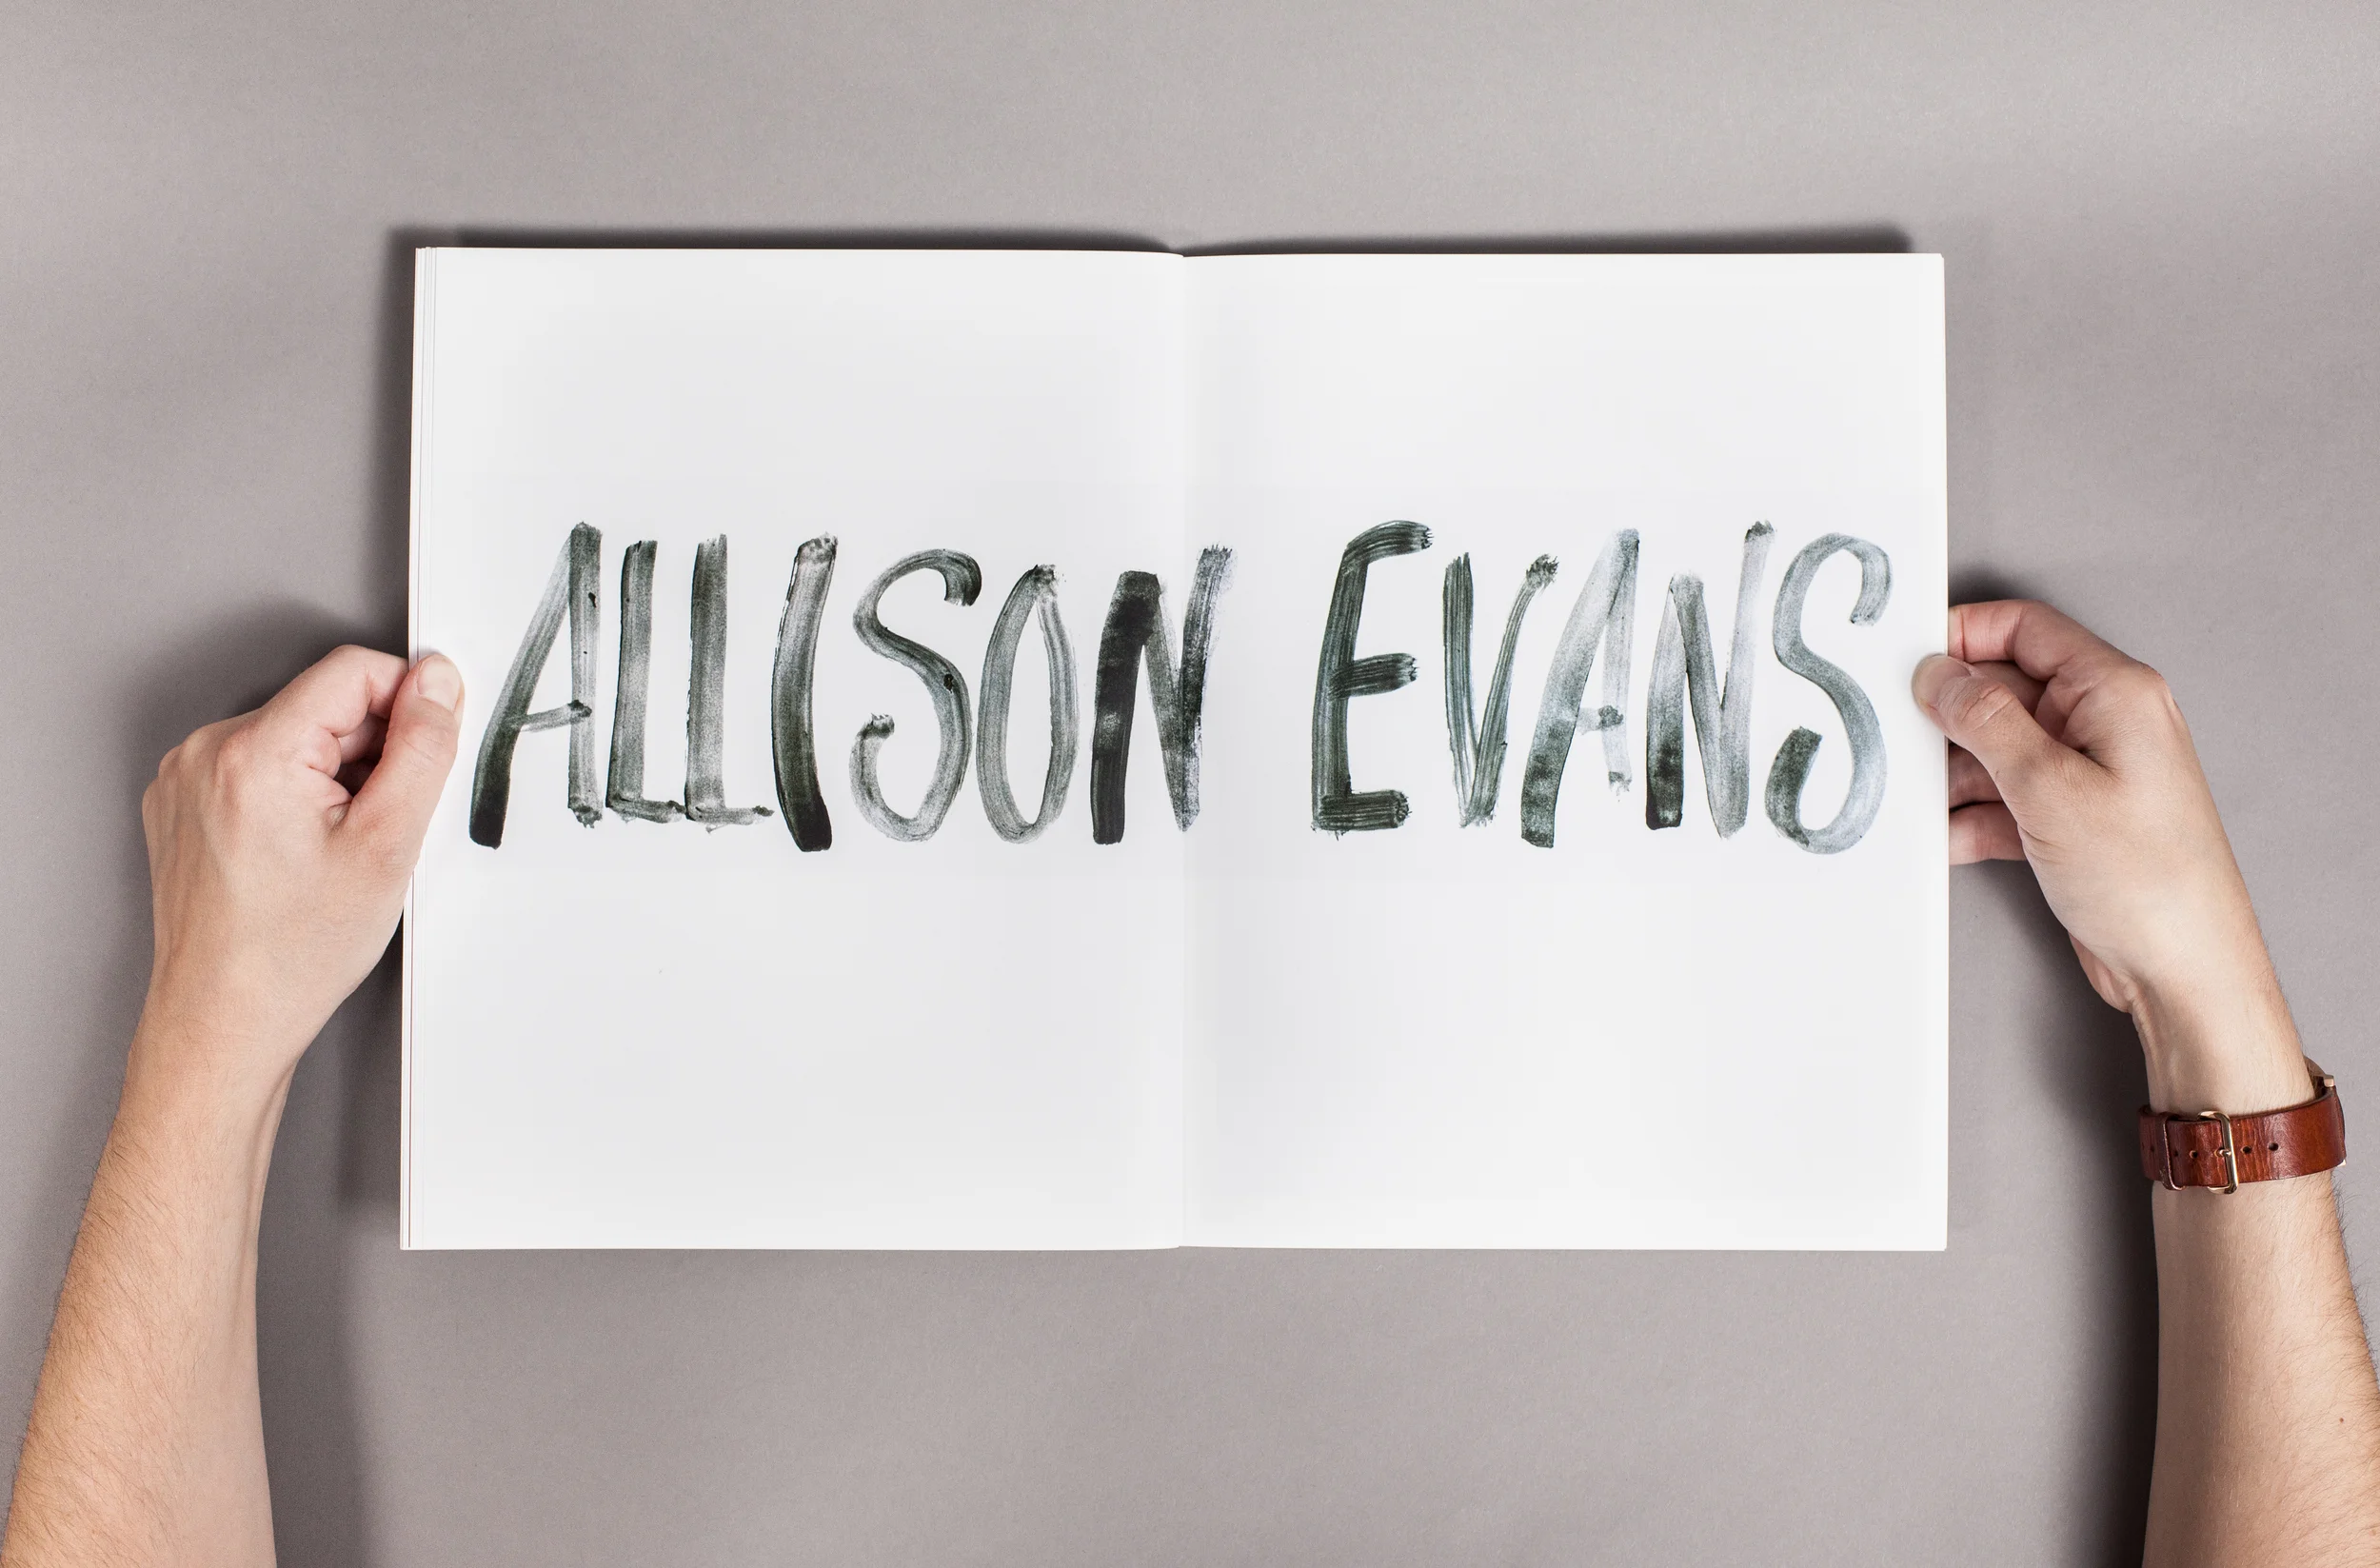 ALLISON EVANS